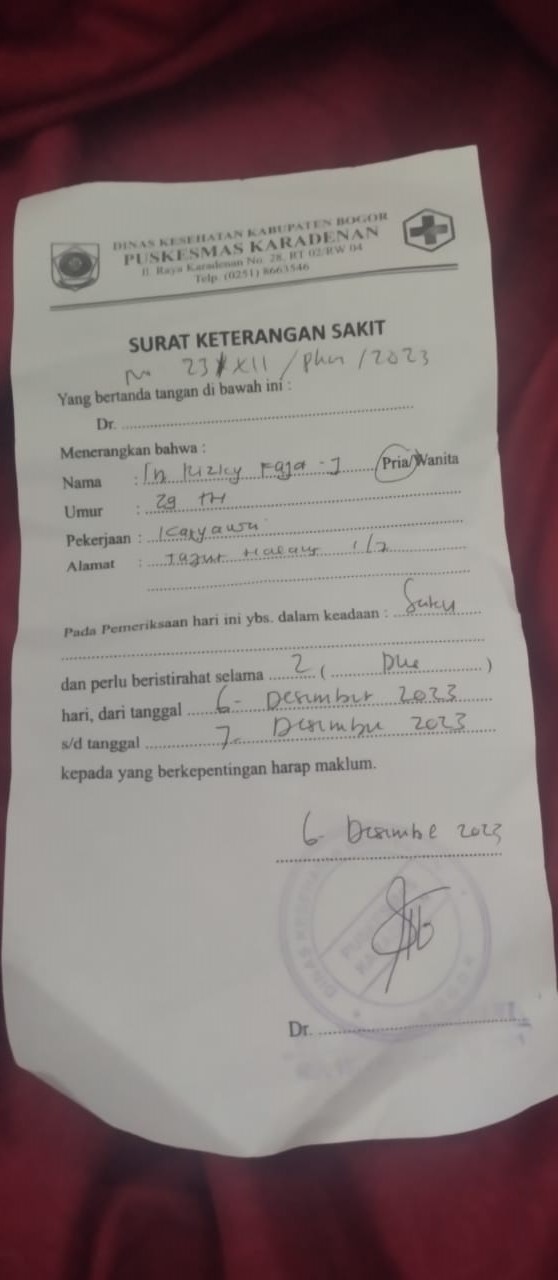 DINAS KESEHATAN KABUPATEN BOGOR
PUSKESMAS KARADENAN
Jl. Raya Karadenan No. 28, RT 02/RW 04
Telp. (0251) 8663546
SURAT KETERANGAN SAKIT
No 23/XII/pkm/2023
Yang bertanda tangan di bawah ini :
Dr.
Menerangkan bahwa :
Nama : Tn Rizky Pria/Wanita
Umur : 29 TH
Pekerjaan : Karyawan
Alamat : 1/7
Pada Pemeriksaan hari ini ybs. dalam keadaan : Sakit
dan perlu beristirahat selama 2 ( Dua )
hari, dari tanggal 6 - Desember 2023
s/d tanggal 7 - Desember 2023
kepada yang berkepentingan harap maklum.
6 - Desember 2023
Dr.